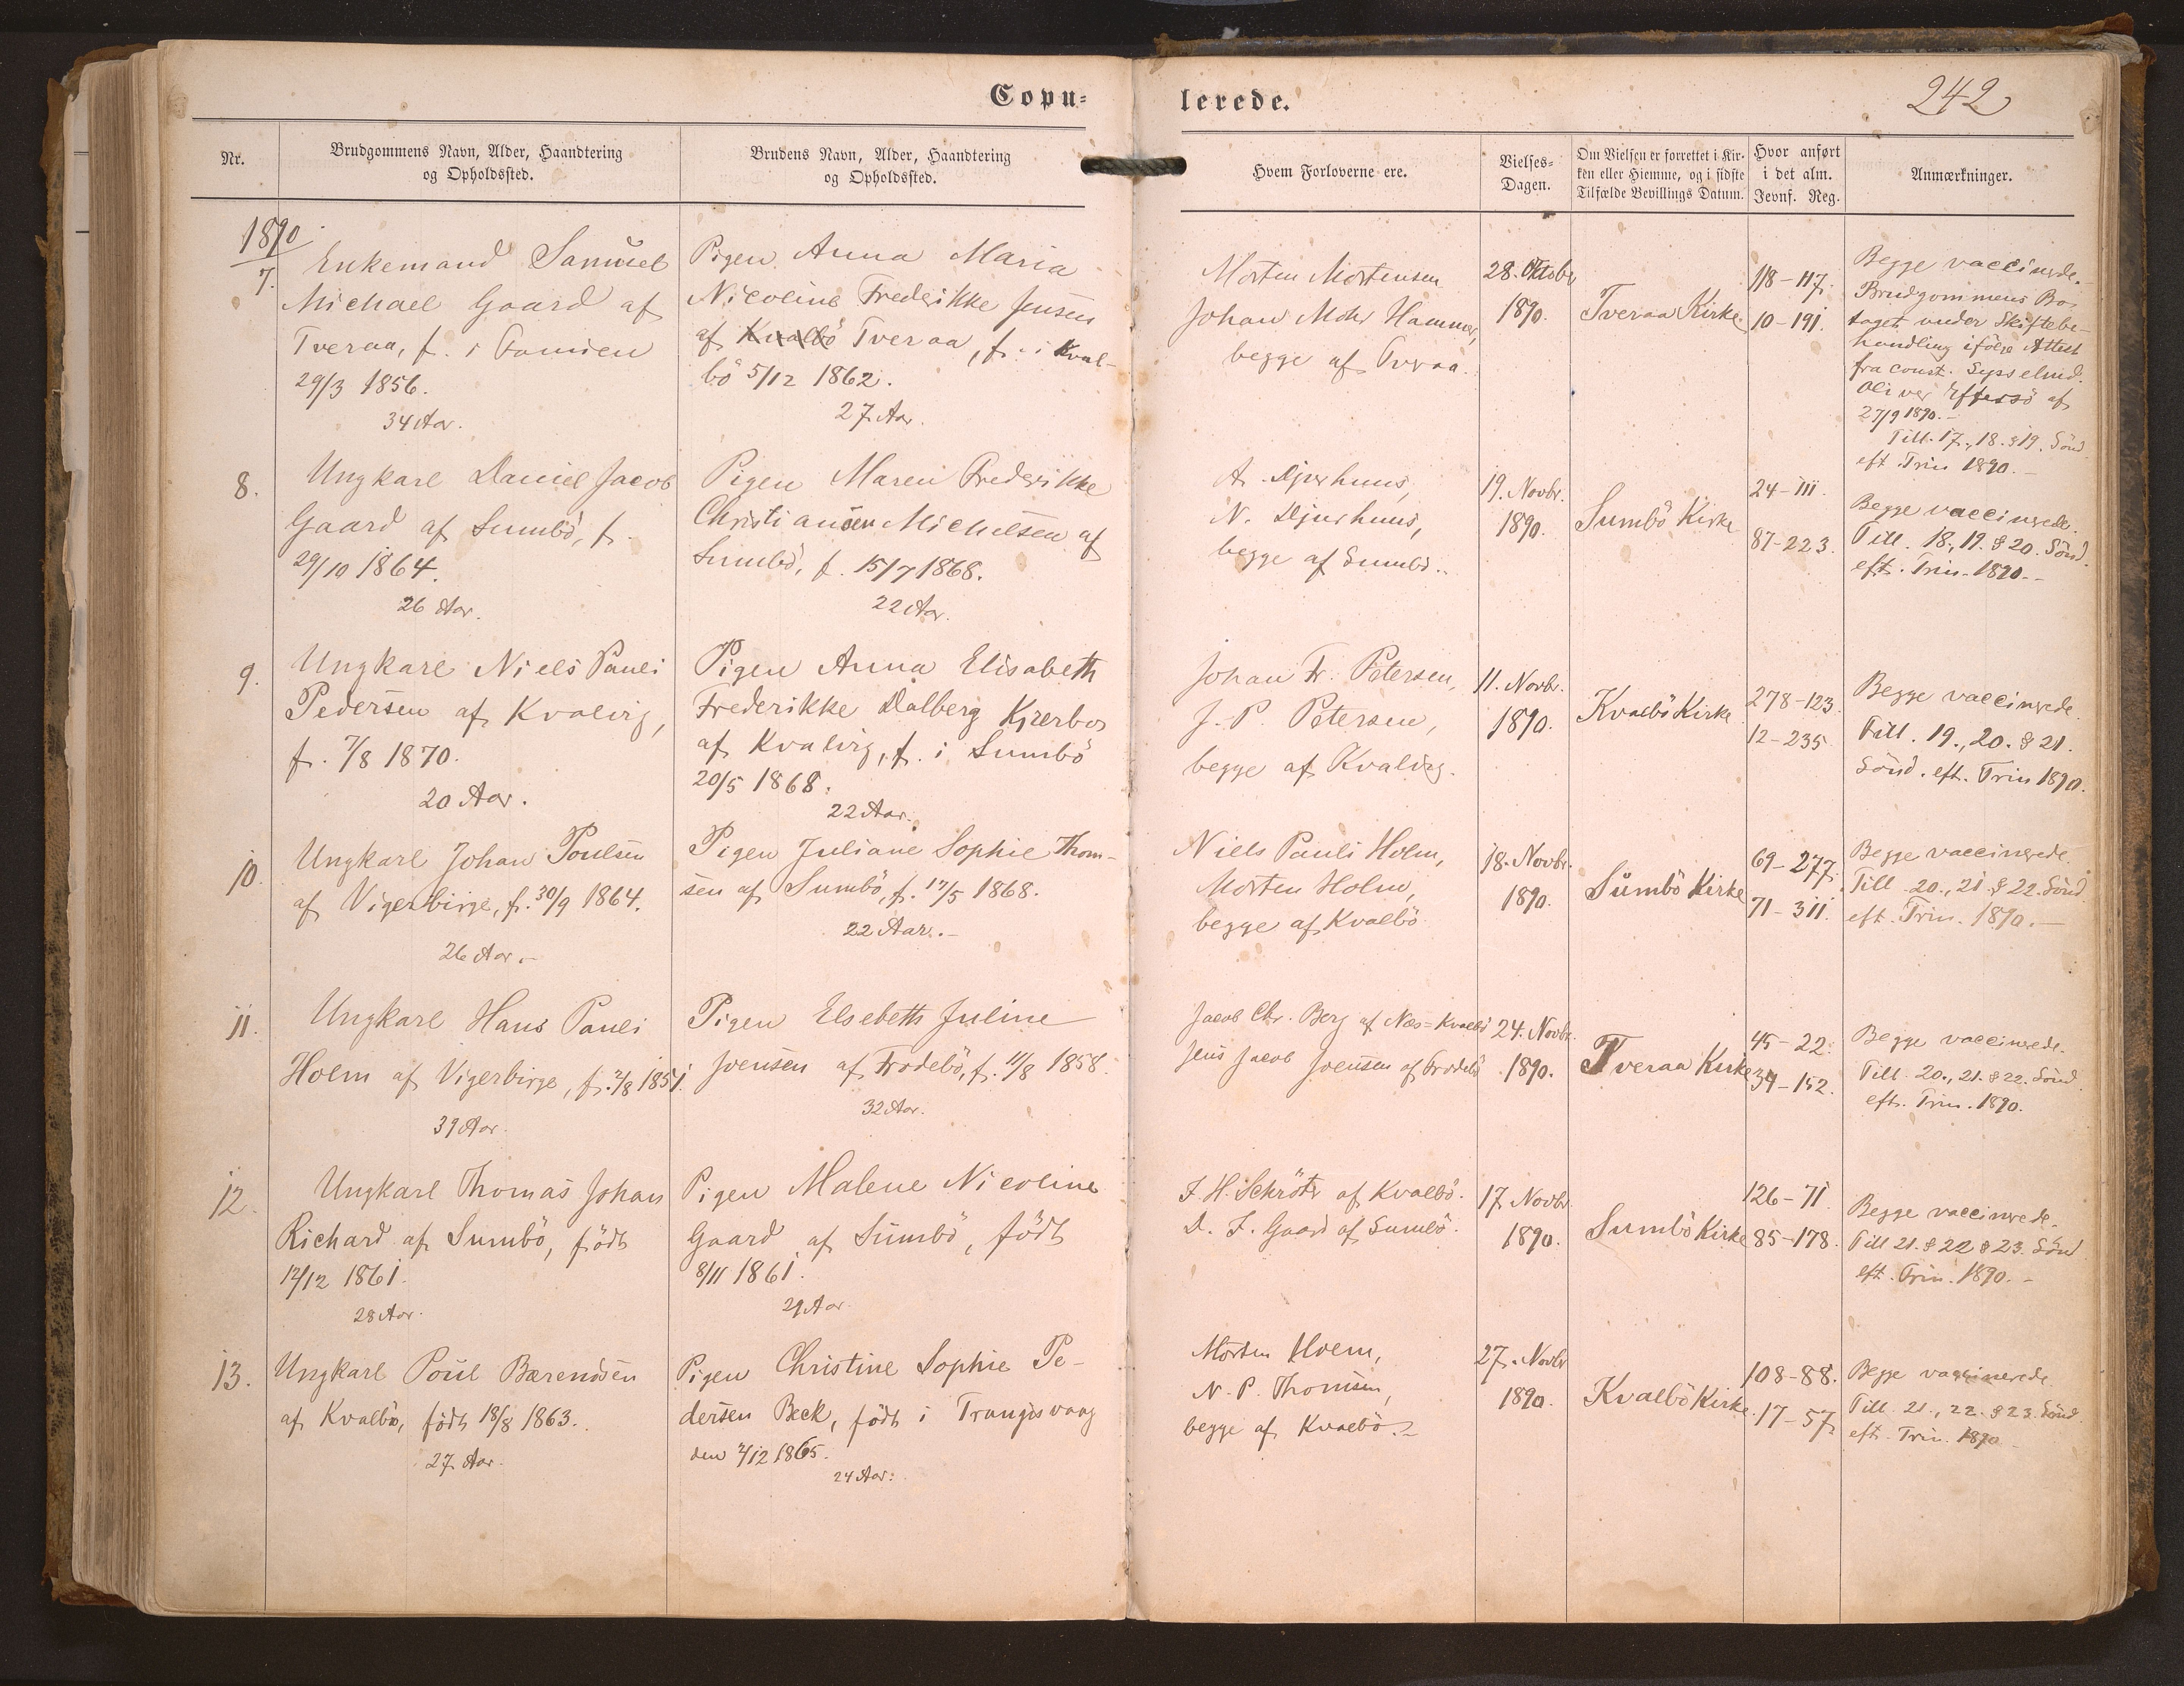 Copu-
lerede.
242
Nr.
Brudgommens Navn, Alder, Haandtering
og Opholdssted.
Brudens Navn, Alder, Haandtering
og Opholdssted.
Hvem Forloverne ere.
Vielses-
Dagen.
Om Vielsen er forrettet i Kir-
ken eller Hiemme, og i sidste
Tilfælde Bevillings Datum.
Hvor anført
i det alm.
Jevnf. Reg.
Anmærkninger.
1890
7.
Enkemand Samuel
Michael Gaard af
Tveraa, f. i Famien
29/3 1856.
34 Aar.
Pigen Anna Maria
Nicoline Frederikke Jensen
af Kvalbö Tveraa, f. i Kval-
bö 5/12 1862.
27 Aar.
Morten Mortensen
Johan Mohr Hammer,
begge af Tveraa.
28. Oktobr
1890.
Tveraa Kirke.
118-117.
10-191.
Begge vaccinerede.
Brudgommens Bo
taget under Skiftebe-
handling ifölge Attest
fra const. Sysselmd.
Oliver Effersö af
27/9 1890.-
Till. 17., 18. & 19. Sönd.
eft. Trin 1890.-
8.
Ungkarl Daniel Jacob
Gaard af Sumbö, f.
29/10 1864.
26 Aar.
Pigen Maren Frederikke
Christiansen Michelsen af
Sumbö, f. 15/7 1868.
22 Aar.
A. Djurhuus,
N. Djurhuus,
begge af Sumbö.
19. Novbr.
1890.
Sumbö Kirke
24-111.
87-223.
Begge vaccinerede.
Till. 18., 19. & 20. Sönd.
eft. Trin. 1890.-
9.
Ungkarl Niels Pauli
Pedersen af Kvalvig,
f. 7/8 1870.
20 Aar.
Pigen Anna Elisabeth
Frederikke Dalberg Kjærbo
af Kvalvig, f. i Sumbö
20/5 1868.
22 Aar.
Johan Fr. Petersen,
J. P. Petersen,
begge af Kvalvig.
11. Novbr.
1890.
Kvalbö Kirke
278-123.
12-235
Begge vaccinerede.
Till. 19., 20. & 21.
Sönd. eft. Trin 1890.
10.
Ungkarl Johan Poulsen
af Vigerbirge, f. 30/9 1864.
26 Aar.-
Pigen Juliane Sophie Thom-
sen af Sumbö, f. 17/5 1868.
22 Aar.-
Niels Pauli Holm,
Morten Holm,
begge af Kvalbö
18. Novbr.
1890.
Sumbö Kirke
69-277.
71-311.
Begge vaccinerede.
Till. 20., 21 & 22. Sönd
eft. Trin. 1890.-
11.
Ungkarl Hans Pauli
Holm af Vigerbirge, f. 2/8 1851.
39 Aar.
Pigen Elsebeth Juline
Joensen af Frodebö, f. 11/8 1858.
32 Aar.
Jacob Chr. Berg af Næs-Kvalbö
Jens Jacob Joensen af Frodebö
24. Novbr.
1890.
Tveraa Kirke
45-22.
34-152.
Begge vaccinerede.
Till. 20., 21. & 22. Sönd
eft. Trin. 1890.
12.
Ungkarl Thomas Johan
Richard af Sumbö, födt
12/12 1861.
28 Aar.
Pigen Malene Nicoline
Gaard af Sumbö, födt
8/11 1861.
29 Aar.
F. H. Schröter af Kvalbö.
D. J. Gaard af Sumbö.
17. Novbr.
1890.
Sumbö Kirke
126-71.
85-178.
Begge vaccinerede.
Till 21. & 22 & 23. Sönd
eft. Trin. 1890.-
13.
Ungkarl Poul Bærendsen
af Kvalbö, födt 18/8 1863.
27 Aar.
Pigen Christine Sophie Pe-
dersen Beck, födt i Trangisvaag
den 2/12 1865.
24 Aar.
Morten Holm,
N. P. Thomsen,
begge af Kvalbö.-
27. Novbr
1890.
Kvalbö Kirke
108-88.
17-57.
Begge vaccinerede.
Till. 21., 22. & 23. Sönd
eft. Trin. 1890